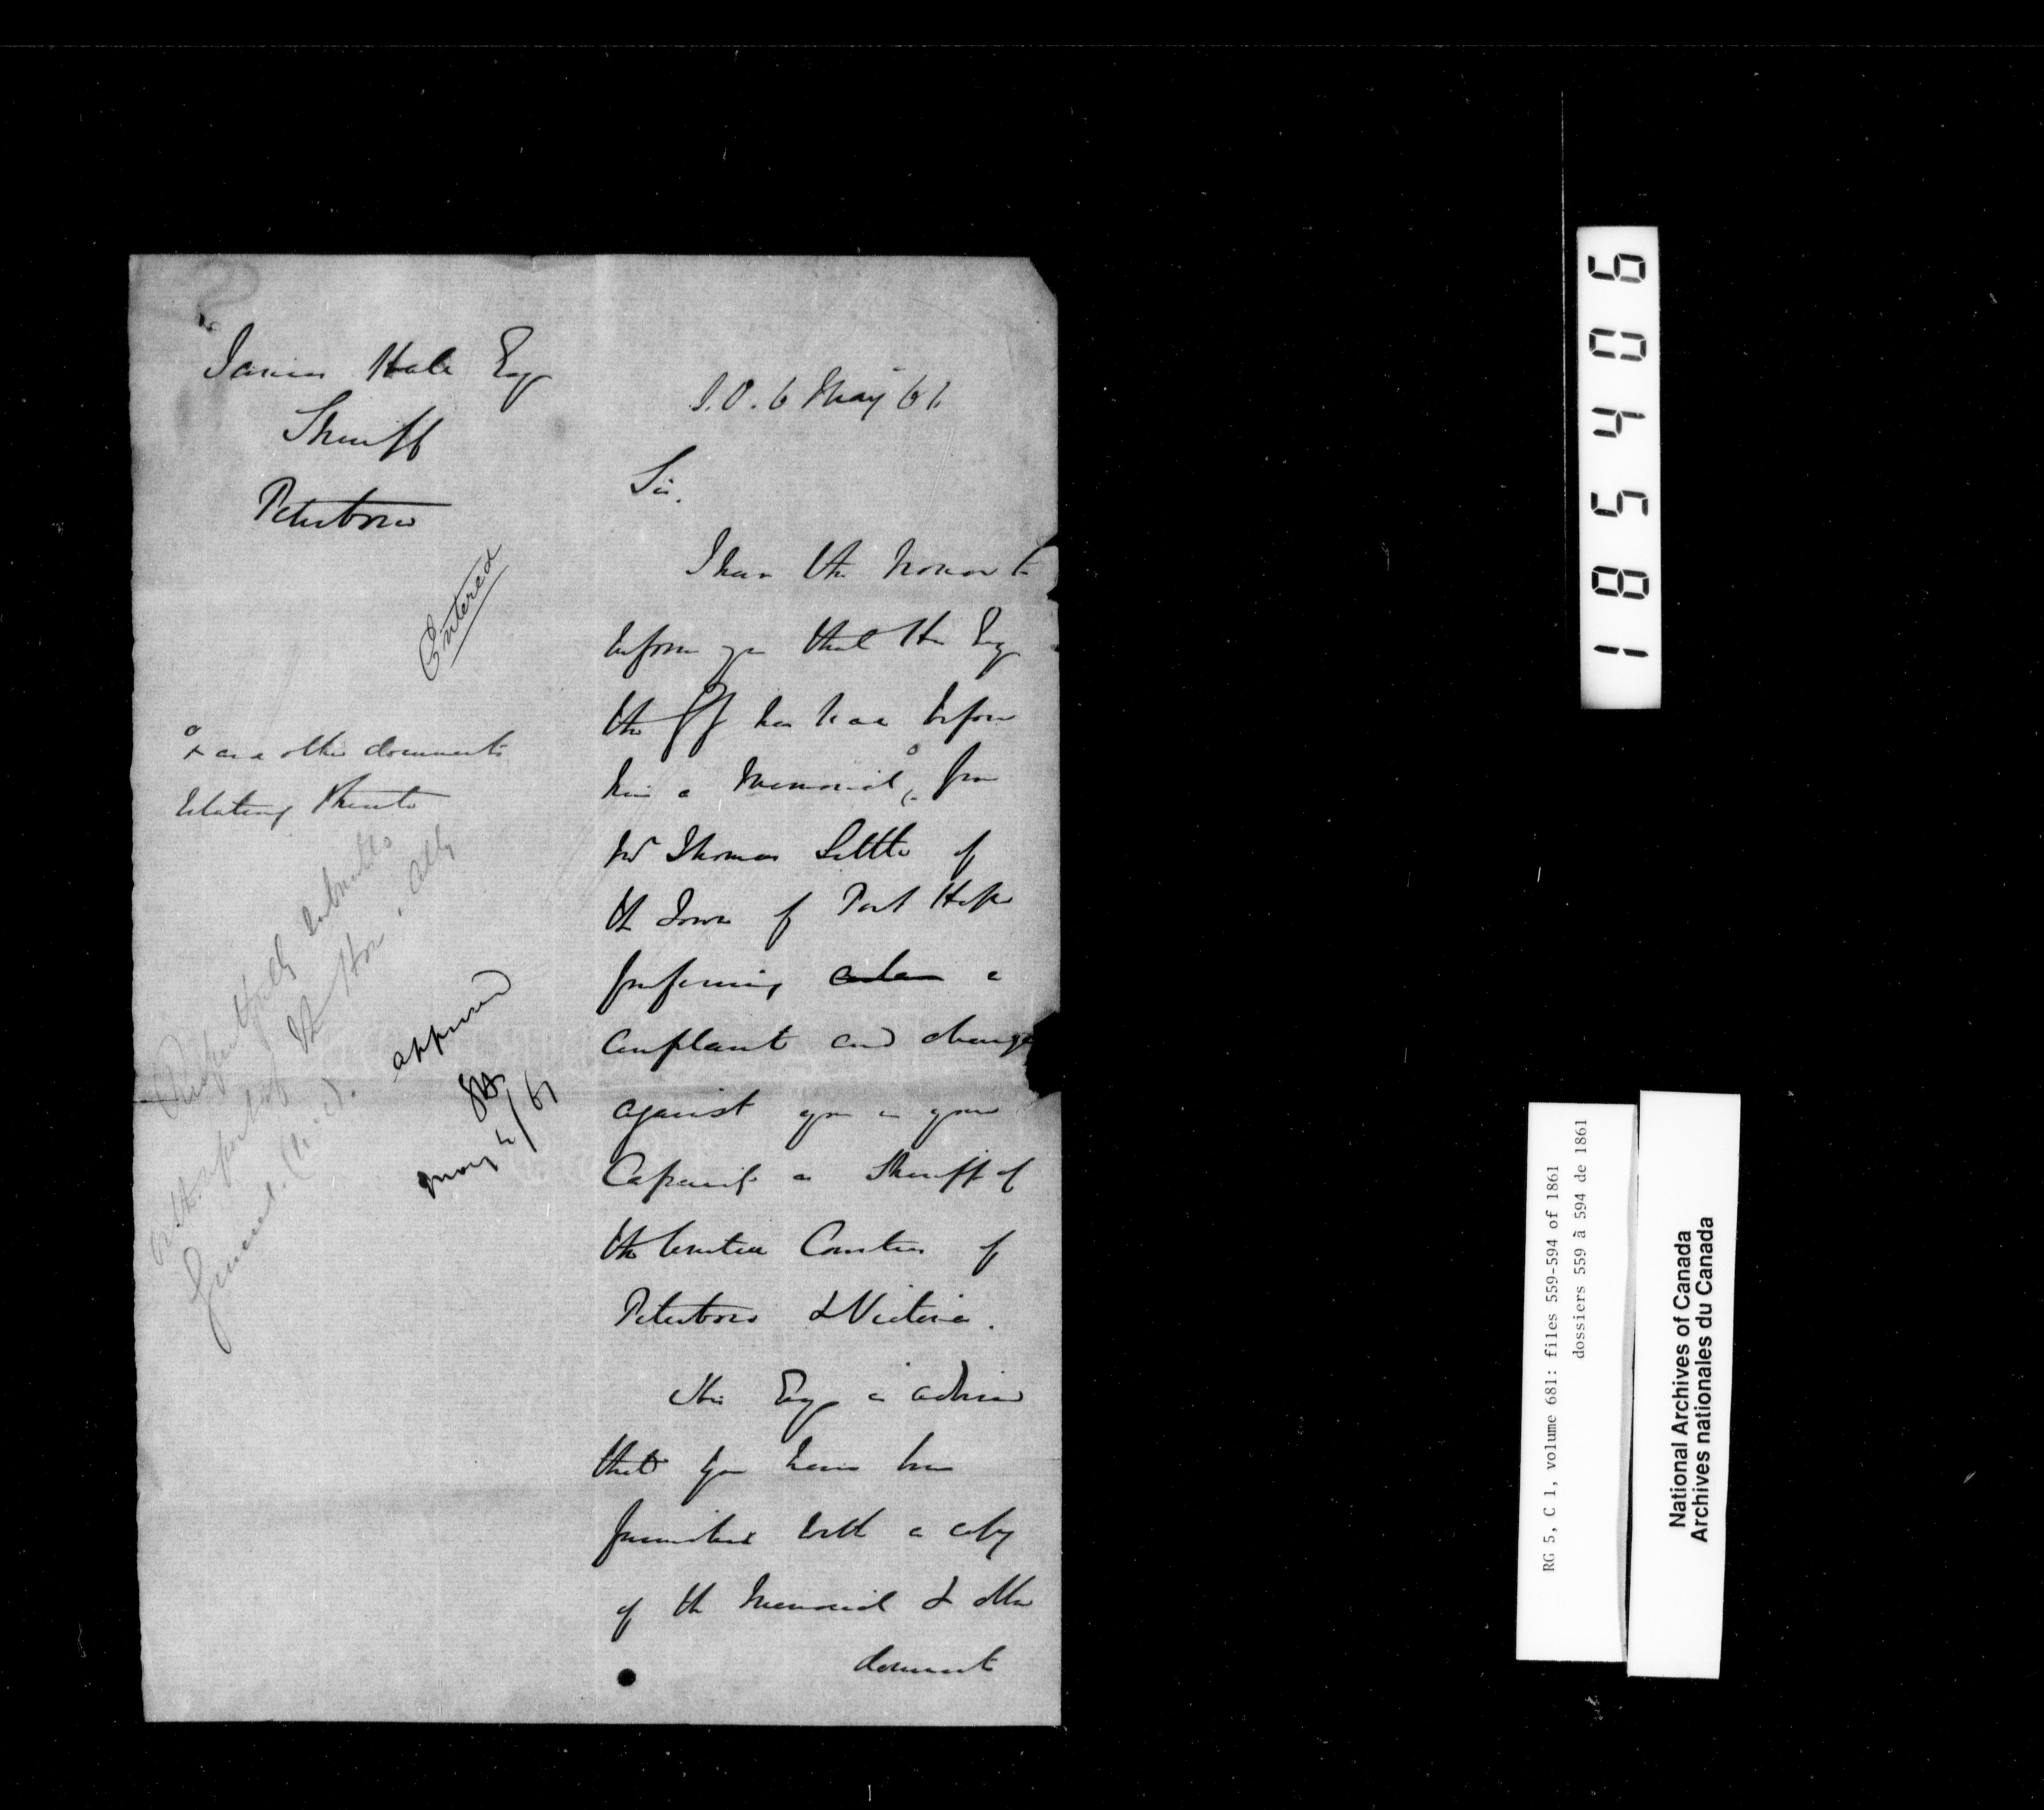 James Hall Esq
Sheriff
Peterboro
Entered
x and other documents
relating thereto
Respectfully submitted
for the Hon. Atty
General. (U.C.).
approved
May 6/61
S.O. 6 May 61.
Sir.
I have the honor to
inform you that His Exy
the GG has had before
him a Memorial, from
Mr Thomas Little of
the Town of Port Hope
preferring a
complaint and charge
against you in your
Capacity as Sheriff of
the United Counties of
Peterboro & Victoria.
His Exy is advised
that you have been
furnished with a copy
of the Memorial & other
document
185406
RG 5, C 1, volume 681: files 559-594 of 1861
dossiers 559 à 594 de 1861
National Archives of Canada
Archives nationales du Canada